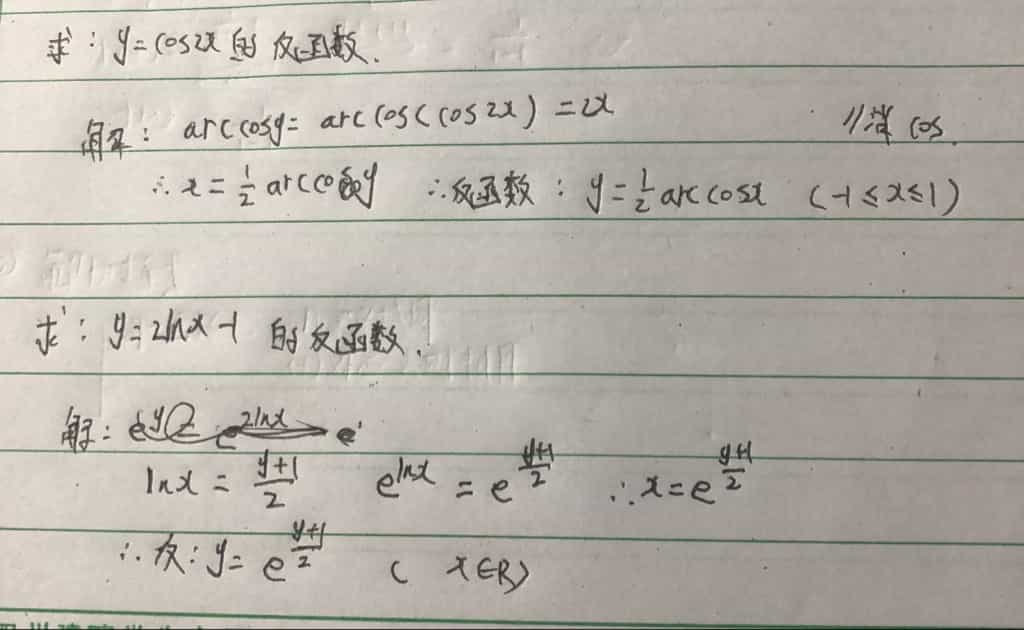 求: y=cos2x的反函数.
解: arccosy= arccos(cos2x) =2x //消cos
∴x=½arccosy ∴反函数: y=½arccosx (-1≤x≤1)
求: y=2lnx-1 的反函数.
解:
lnx = (y+1)/2 e^(lnx) = e^((y+1)/2) ∴x=e^((y+1)/2)
∴反: y= e^((y+1)/2) ( x∈R)